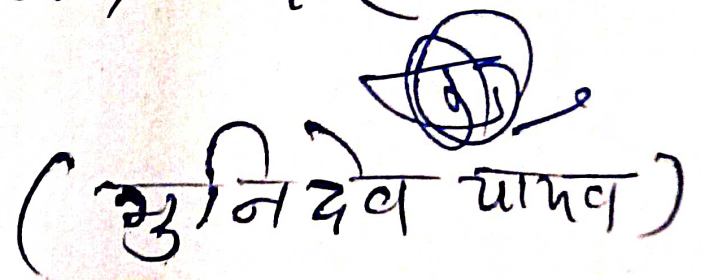 (मुनि देव यादव)